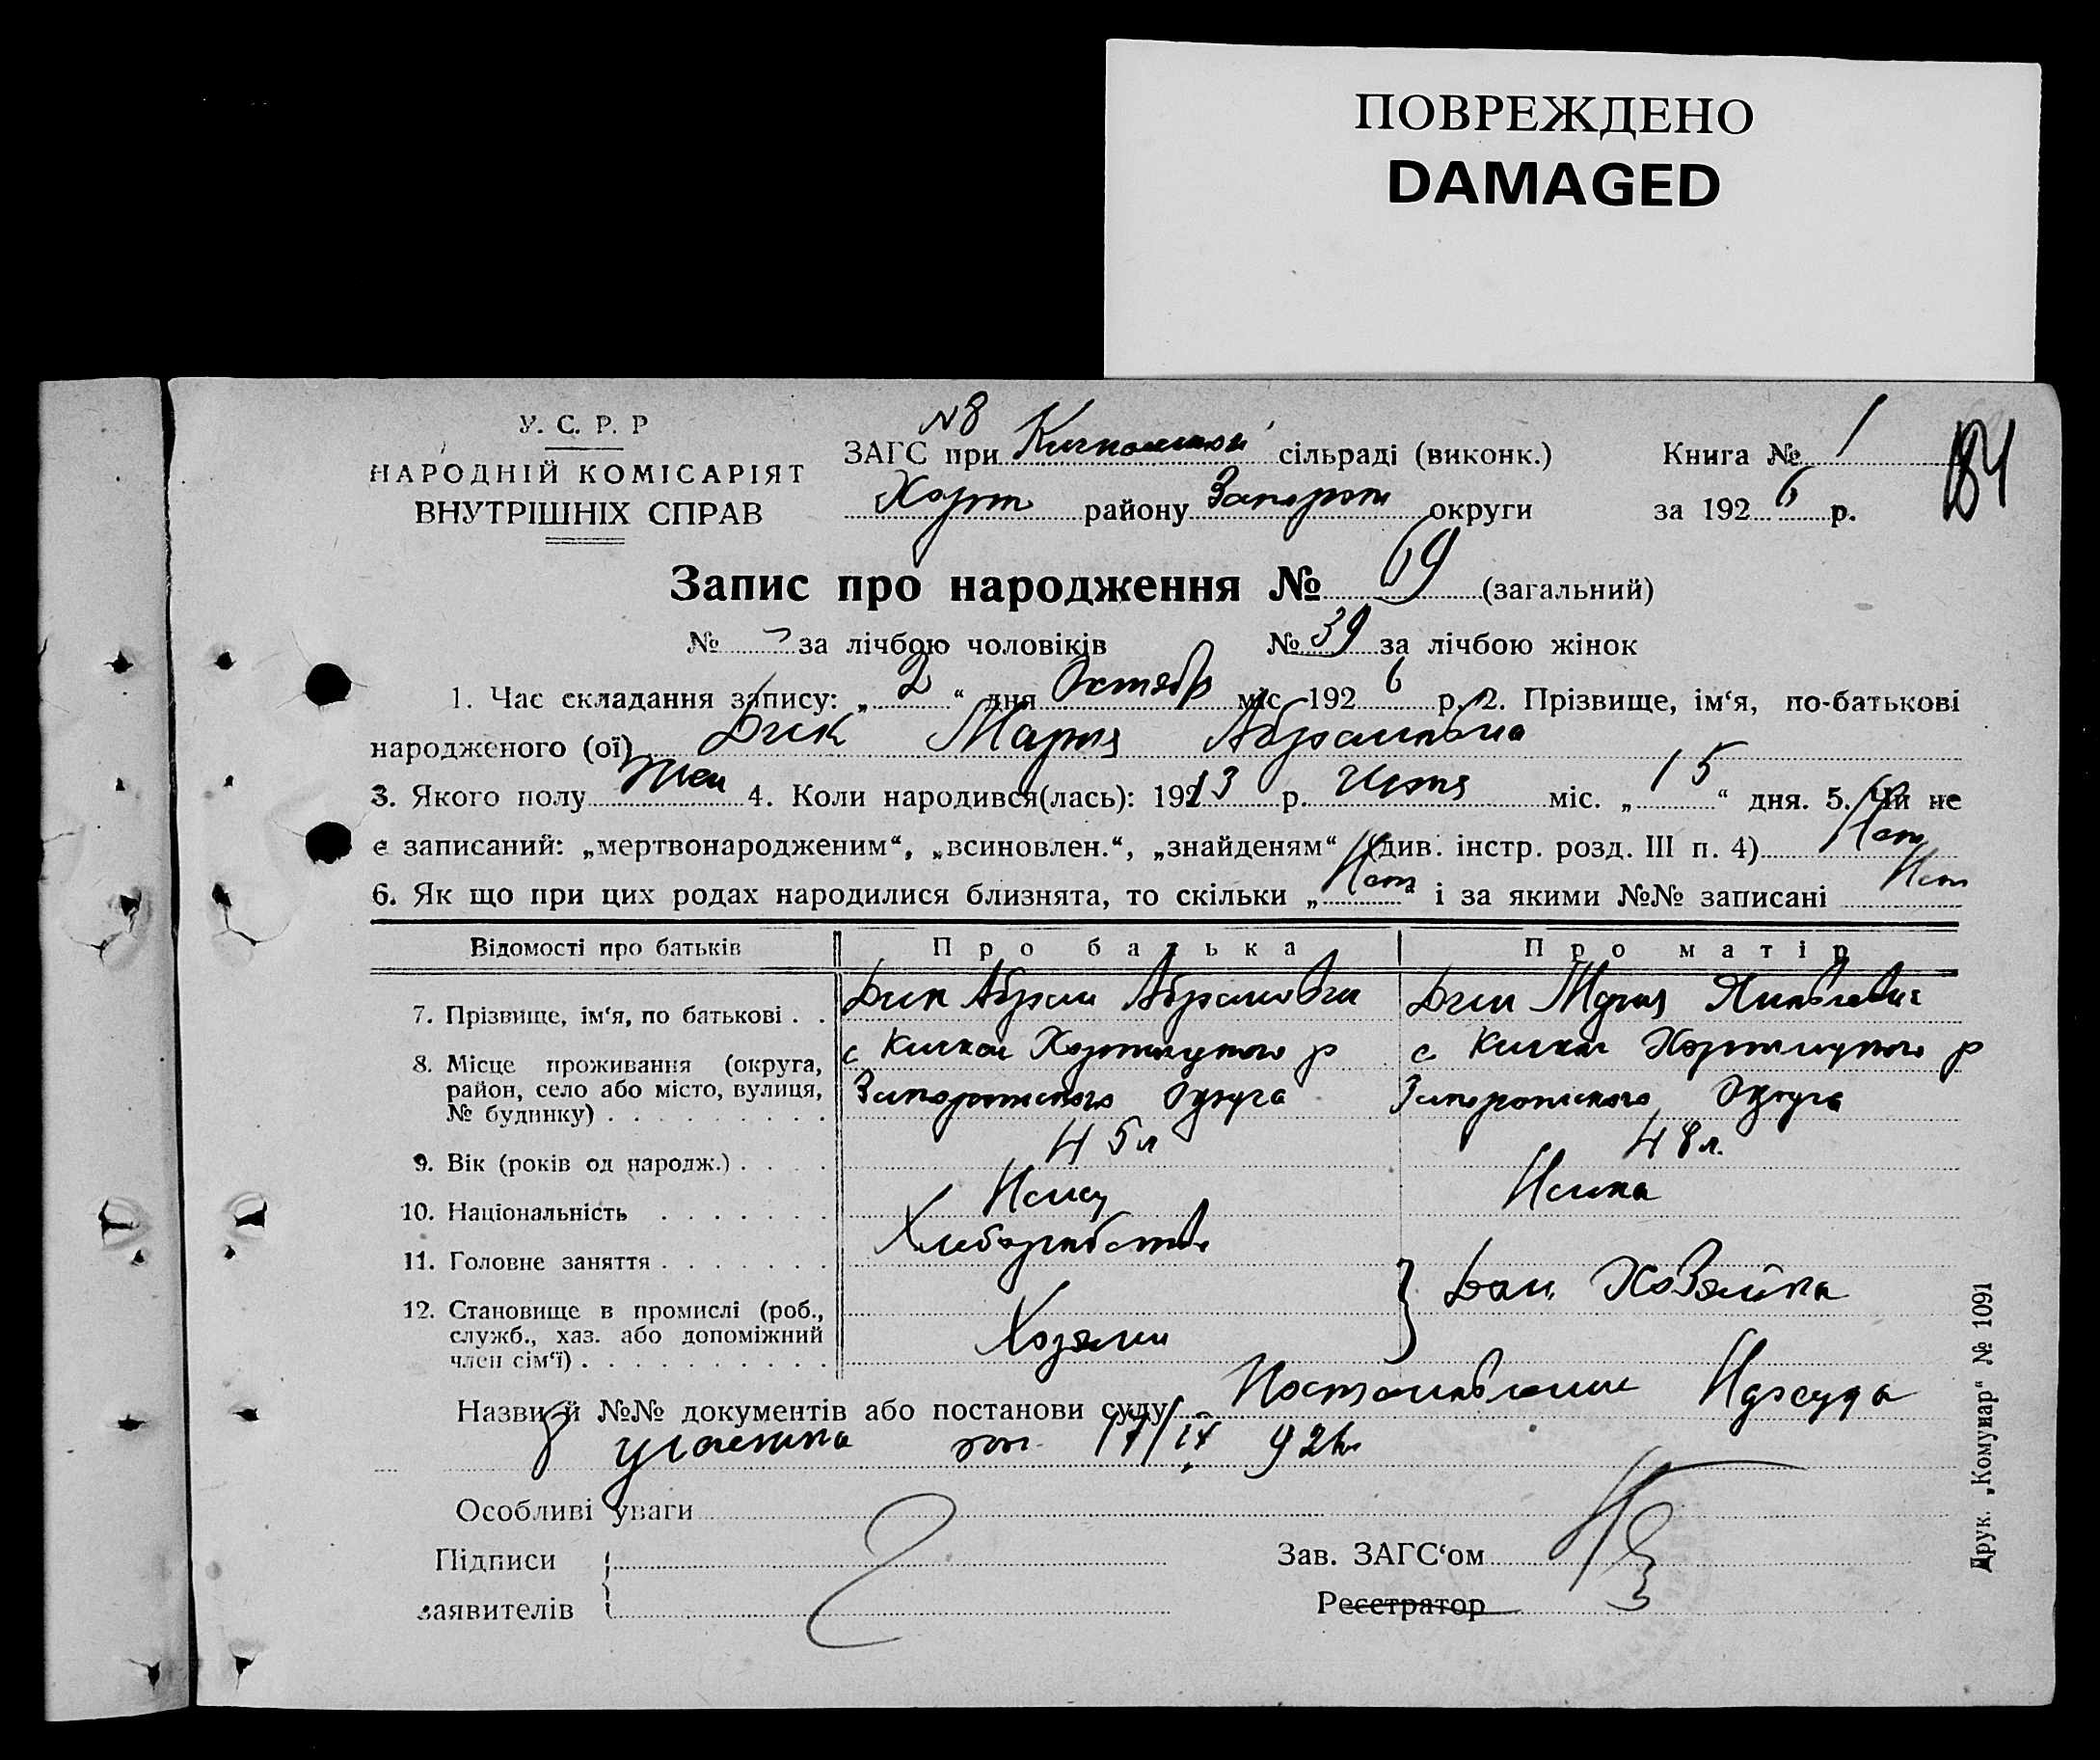 ПОВРЕЖДЕНО
DAMAGED
У. С. Р. Р
НАРОДНІЙ КОМІСАРІЯТ
ВНУТРІШНІХ СПРАВ
N8
ЗАГС при Кичкасской сільраді (виконк.)
Хорт району Запорож округи
Книга № 1
за 1926 р.
184
Запис про народження № 69 (загальний)
№ за лічбою чоловіків № 39 за лічбою жінок
1. Час складання запису: „2“ дня Октябр міс 1926 р. 2. Прізвище, ім‘я, по-батькові
народженого (ої) Дик Мария Абрамовна
3. Якого полу жен 4. Коли народився(лась): 1913 р. Июня міс. „15“ дня. 5. Чи не
є записаний: „мертвонародженим“, „всиновлен.“, „знайденям“ (див. інстр. розд. III п. 4) Нет
6. Як що при цих родах народилися близнята, то скільки „Нет і за якими №№ записані Нет
Відомості про батьків Про батька Про матір
7. Прізвище, ім‘я, по батькові . . Дик Абрам Абрамович Дик Мария Яковлевна
8. Місце проживання (округа, район, село або місто, вулиця, № будинку) с Кичкас Хортицкого р Запорожского Округа с Кичкас Хортицкого р Запорожского Округа
9. Вік (років од народж.) 45 л 48 л.
10. Національність Немец Немка
11. Головне заняття Хлебопашество
12. Становище в промислі (роб., служб., хаз. або допоміжний член сім‘ї) Хозяин } Дом. Хозяйка
Назви й №№ документів або постанови суду Постановление Нарсуда
участка от 17/IX 926
Особливі уваги
Підписи
заявителів
Зав. ЗАГС‘ом
Реєстратор
Друк. „Комунар“ № 1091